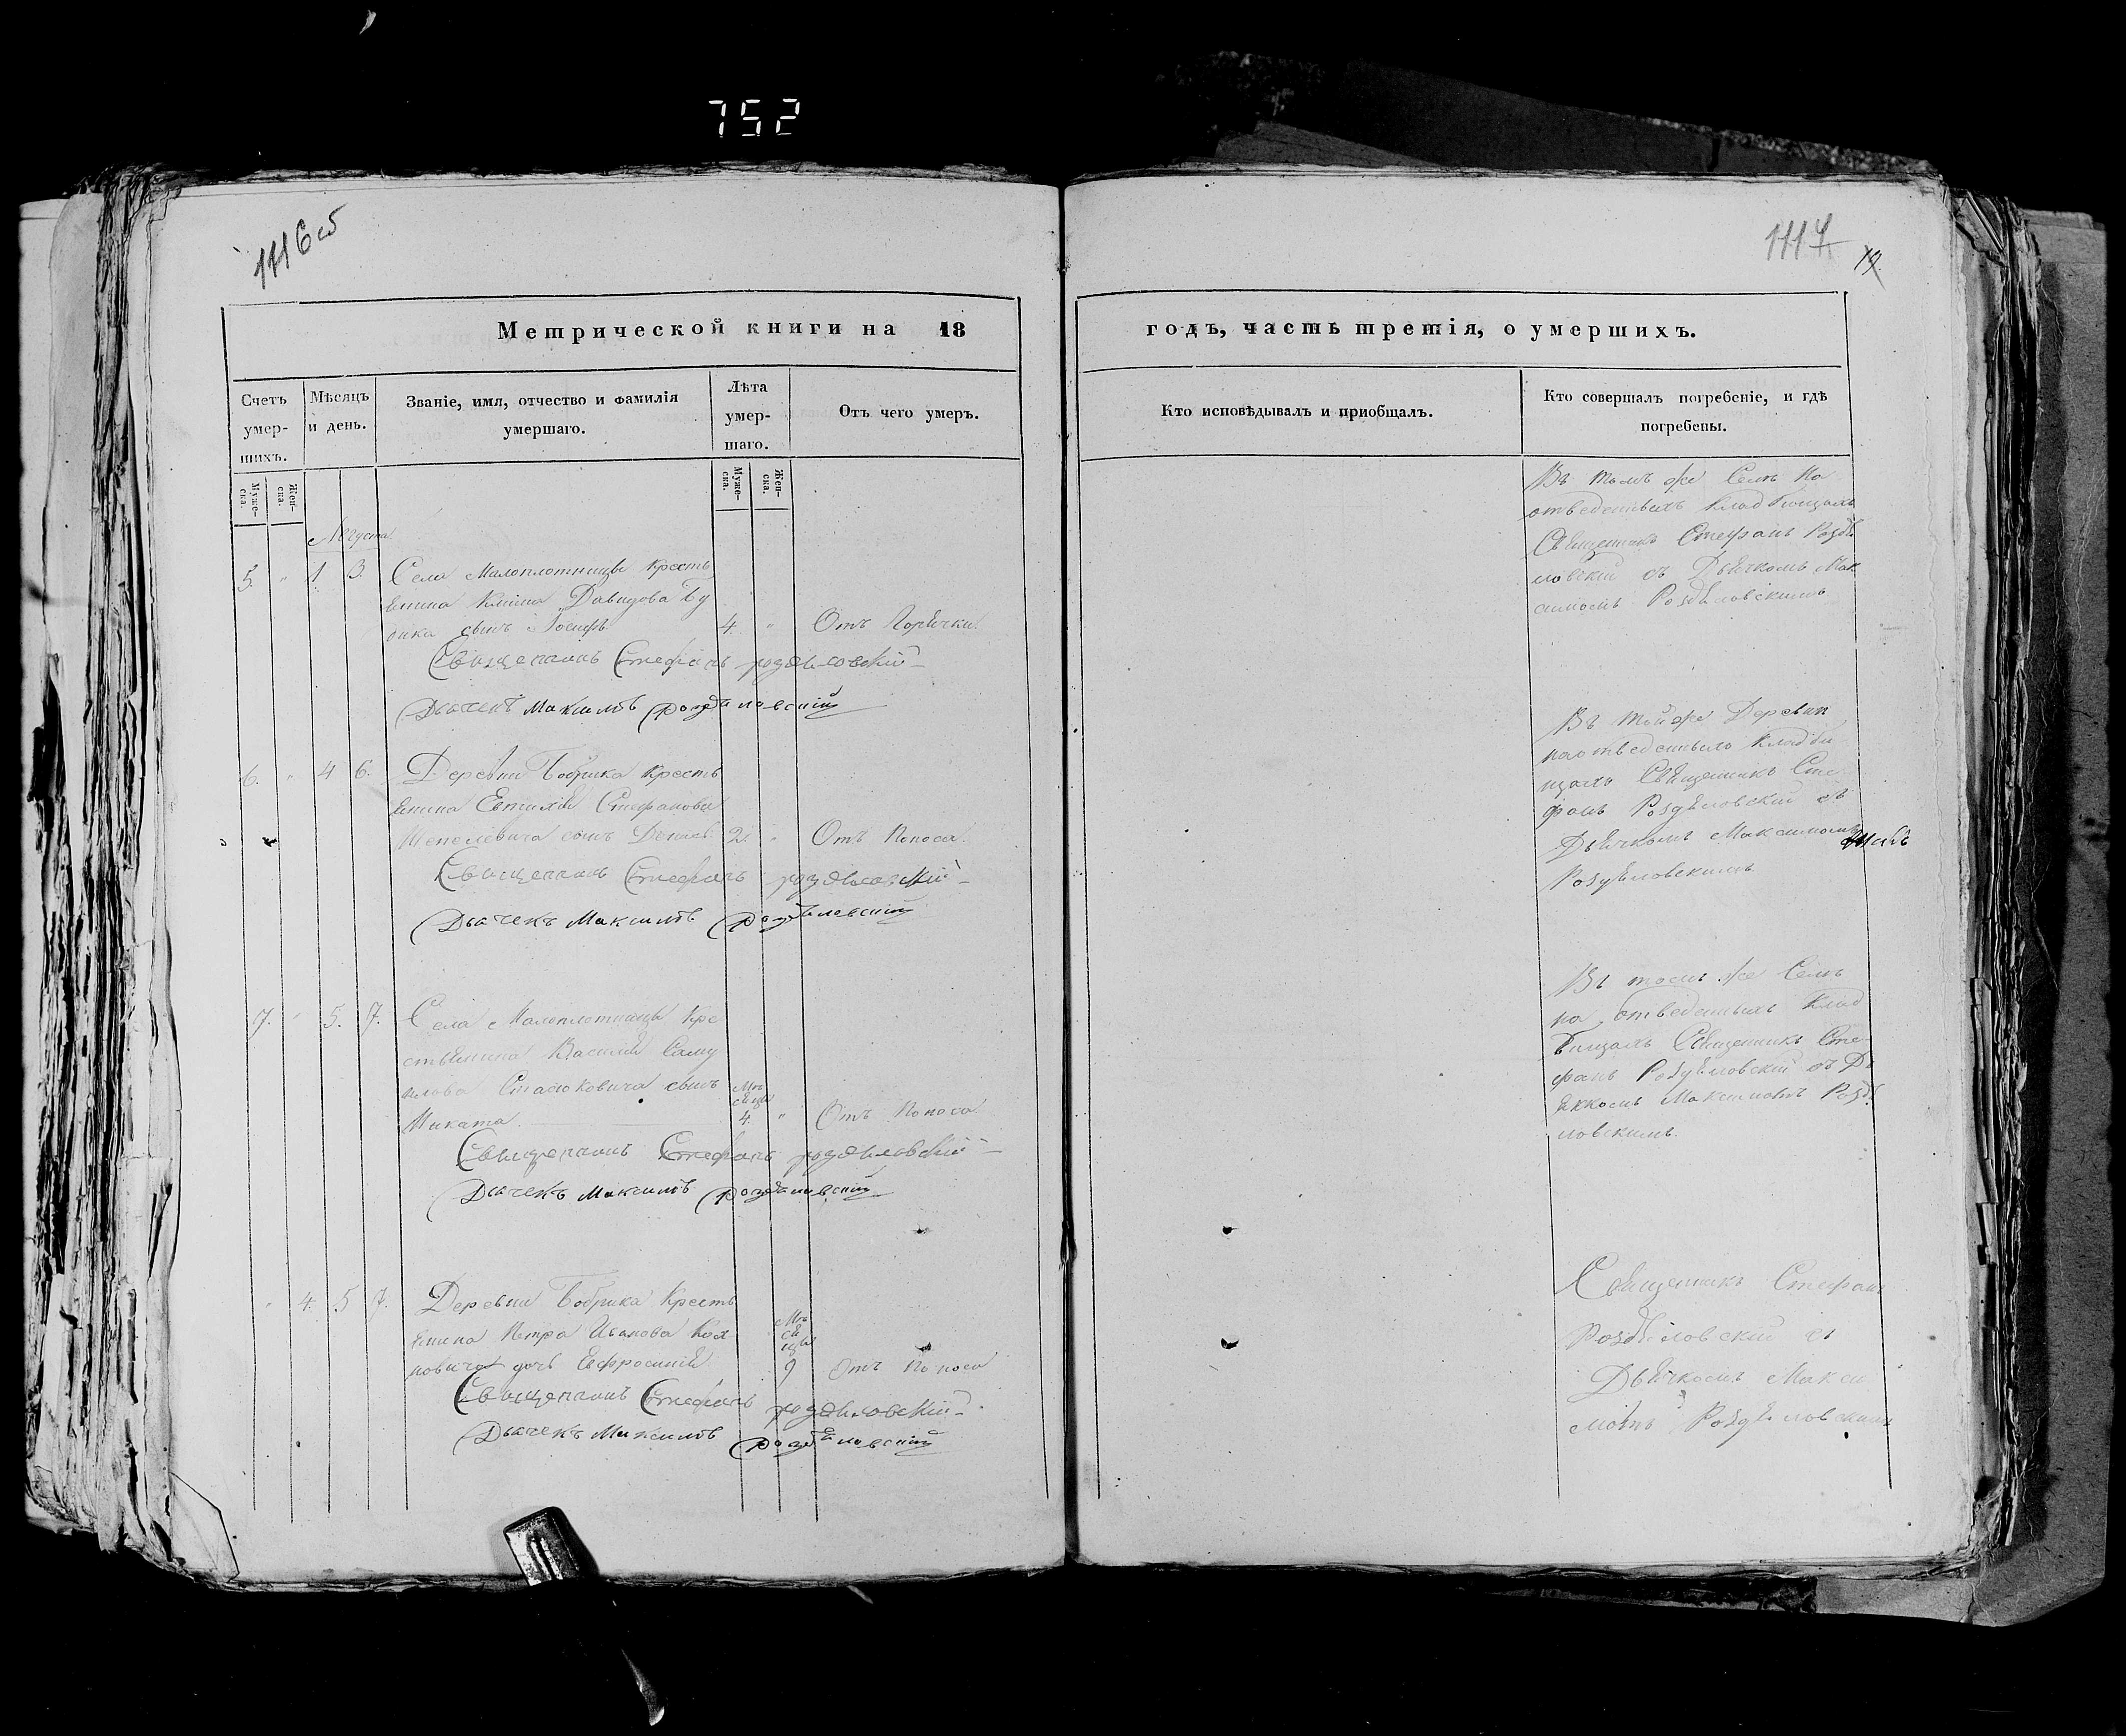 752
1116 об
1117
19.
Метрической книги на 18
годъ, часть третія, о умершихъ.
Счетъ умер-шихъ.
Мѣсяцъ и день.
Званіе, имя, отчество и фамилія умершаго.
Лѣта умер-шаго.
Отъ чего умеръ.
Кто исповѣдывалъ и приобщалъ.
Кто совершалъ погребеніе, и гдѣ погребены.
Муже-ска.
Жен-ска.
Муже-ска.
Жен-ска.
Августа
5. " 1 3. Села Малоплотницы Кресть
янина Давидова Бу
дика сынъ Іосифъ 4. " Отъ Горячки.
Священникъ Стефанъ Роздѣловскій
Дьячекъ Максимъ Роздѣловскій
Въ томъ же Селѣ На
отведенныхъ кладбищахъ
Священникъ Стефанъ Роздѣ
ловскій съ Дьячкомъ Мак
симомъ Роздѣловскимъ
6. " 4 6. Деревни Бобрика Кресть
янина Евтихія Стефанова
сынъ 2. " Отъ Поноса.
Священникъ Стефанъ Роздѣловскій
Дьячекъ Максимъ Роздѣловскій
Въ той же Деревни
на отведенныхъ кладби
щахъ Священникъ Сте
фанъ Роздѣловскій съ
Дьячкомъ Максимомъ
Роздѣловскимъ.
7. " 5. 7. Села Малоплотницы Кре
стьянина Василія Саму
илова Стасюковича сынъ
Никита. Мѣсяцы 4. " Отъ Поноса
Священникъ Стефанъ Роздѣловскій
Дьячекъ Максимъ Роздѣловскій
Въ томъ же Селѣ
на отведенныхъ Клад
бищахъ Священникъ Сте
фанъ Роздѣловскій съ Дь
ячкомъ Максимомъ Роздѣ
ловскимъ.
" 4. 5 7. Деревни Бобрика Кресть
янина Петра Иванова
дочь Евфросинія Мѣсяцы 9 Отъ Поноса
Священникъ Стефанъ Роздѣловскій
Дьячекъ Максимъ Роздѣловскій
Священникъ Стефанъ
Роздѣловскій съ
Дьячкомъ Макси
момъ Роздѣловскимъ